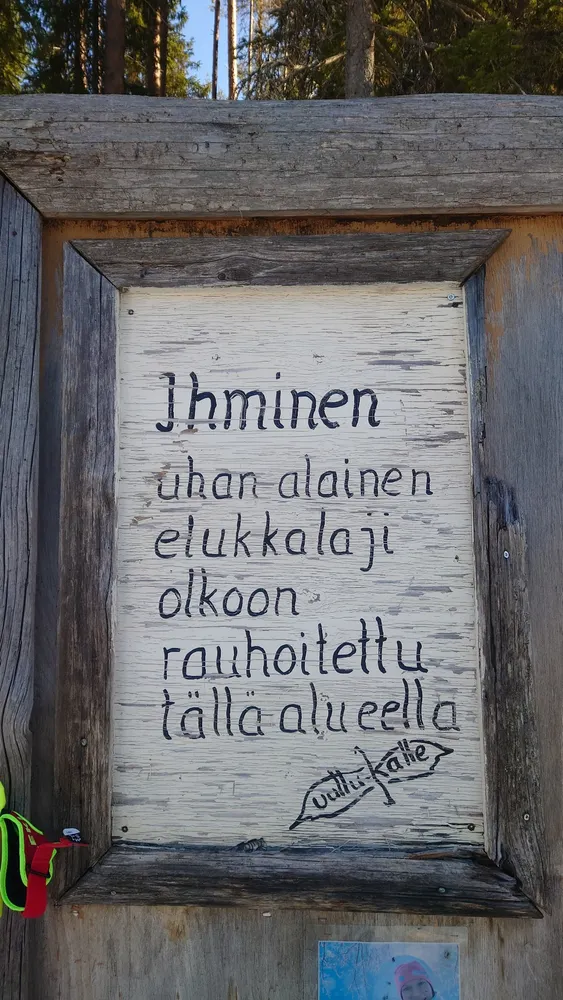 Ihminen
uhan alainen
elukkalaji
olkoon
rauhoitettu
tällä alueella
uuttu-kalle